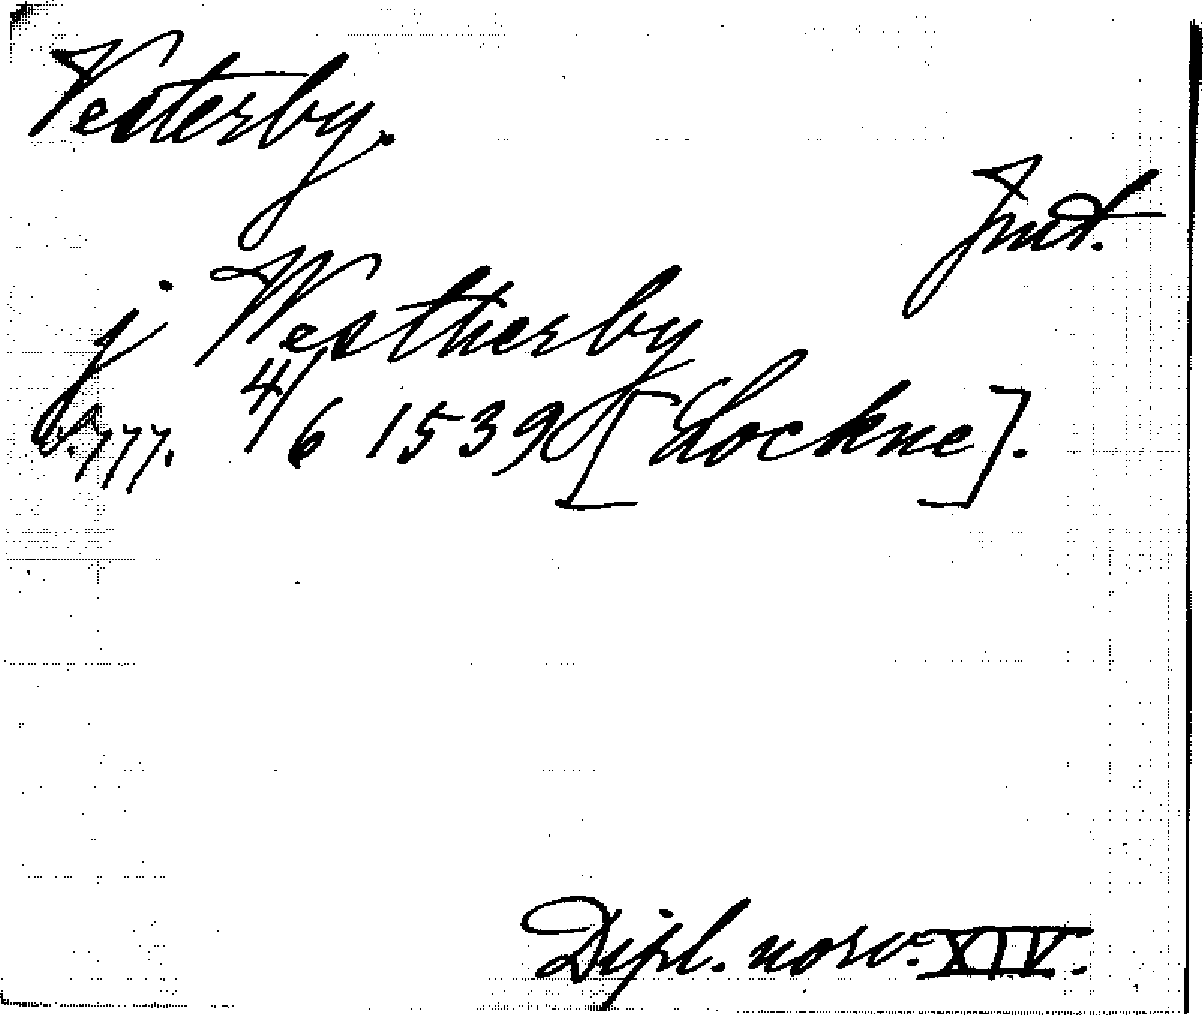 Vesterby.
Jmt.
j Westherby
s. 777. 4/6 1539 [Lockne].
Dipl. norv. XIV.